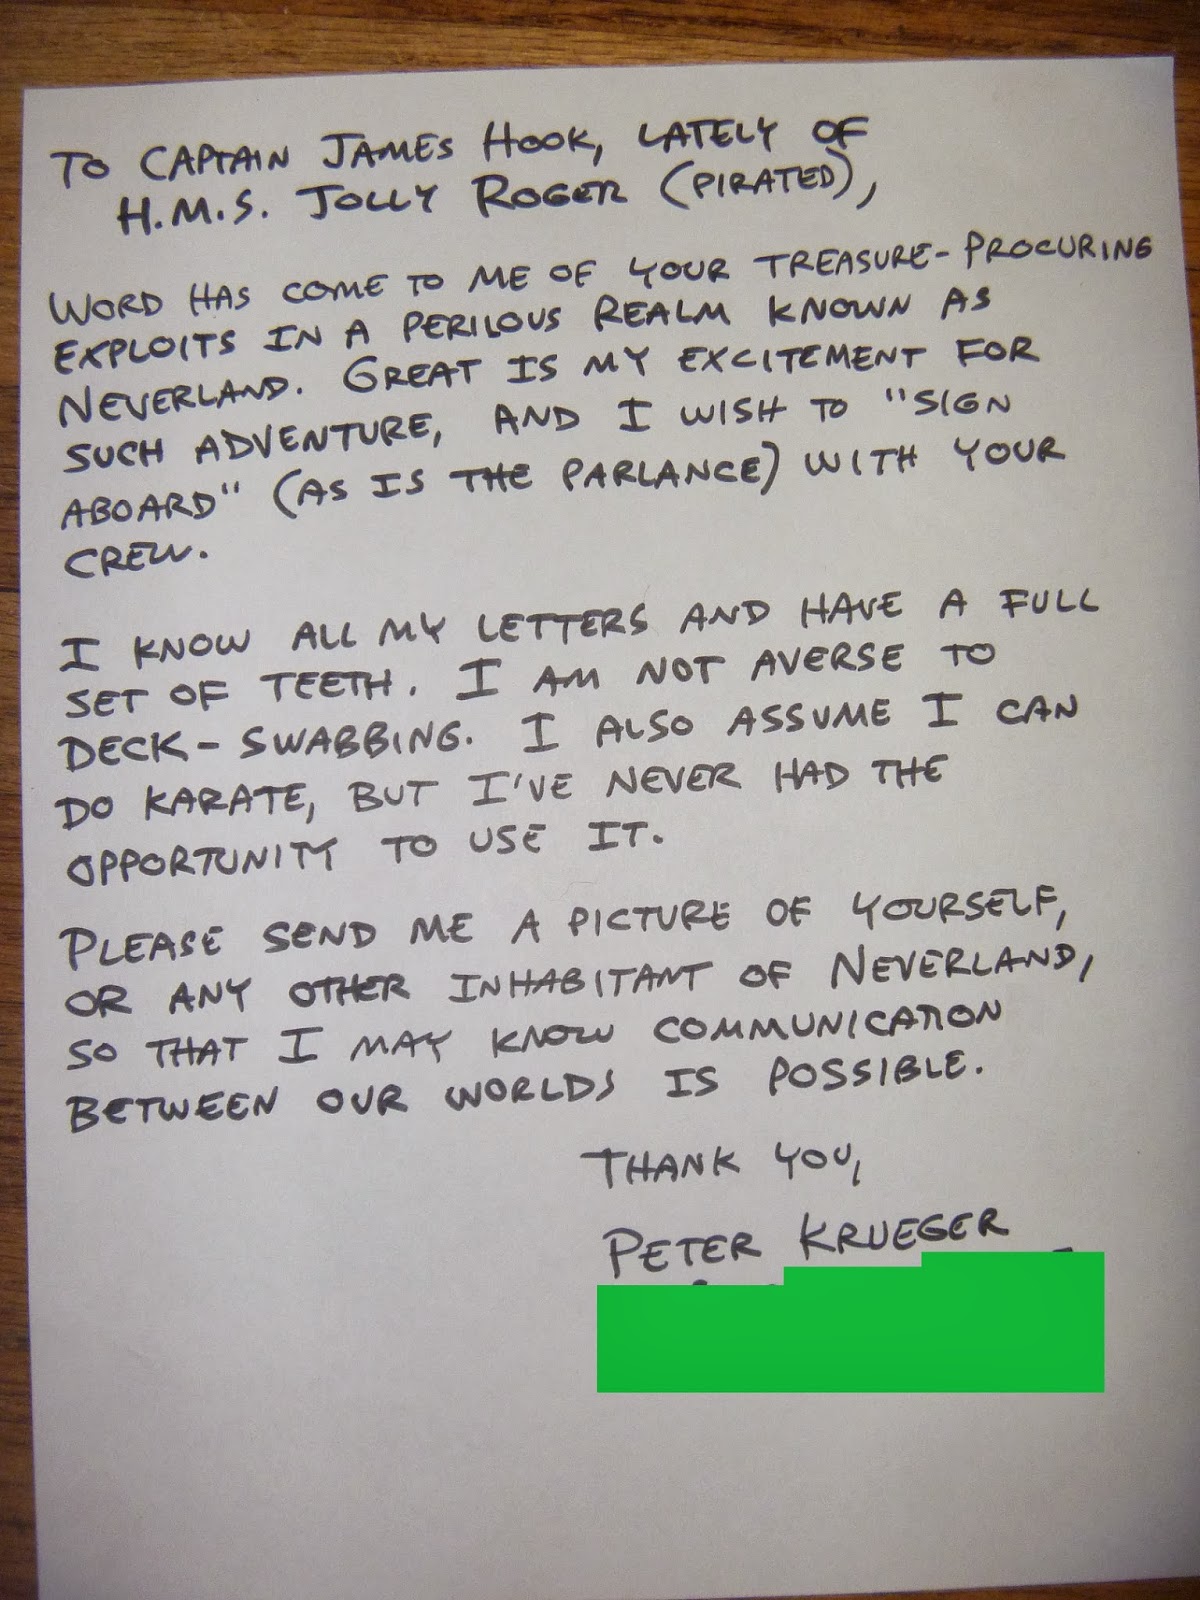 TO CAPTAIN JAMES HOOK, LATELY OF
H.M.S. JOLLY ROGER (PIRATED),
WORD HAS COME TO ME OF YOUR TREASURE-PROCURING
EXPLOITS IN A PERILOUS REALM KNOWN AS
NEVERLAND. GREAT IS MY EXCITEMENT FOR
SUCH ADVENTURE, AND I WISH TO "SIGN
ABOARD" (AS IS THE PARLANCE) WITH YOUR
CREW.
I KNOW ALL MY LETTERS AND HAVE A FULL
SET OF TEETH. I AM NOT AVERSE TO
DECK-SWABBING. I ALSO ASSUME I CAN
DO KARATE, BUT I'VE NEVER HAD THE
OPPORTUNITY TO USE IT.
PLEASE SEND ME A PICTURE OF YOURSELF,
OR ANY OTHER INHABITANT OF NEVERLAND,
SO THAT I MAY KNOW COMMUNICATION
BETWEEN OUR WORLDS IS POSSIBLE.
THANK YOU,
PETER KRUEGER